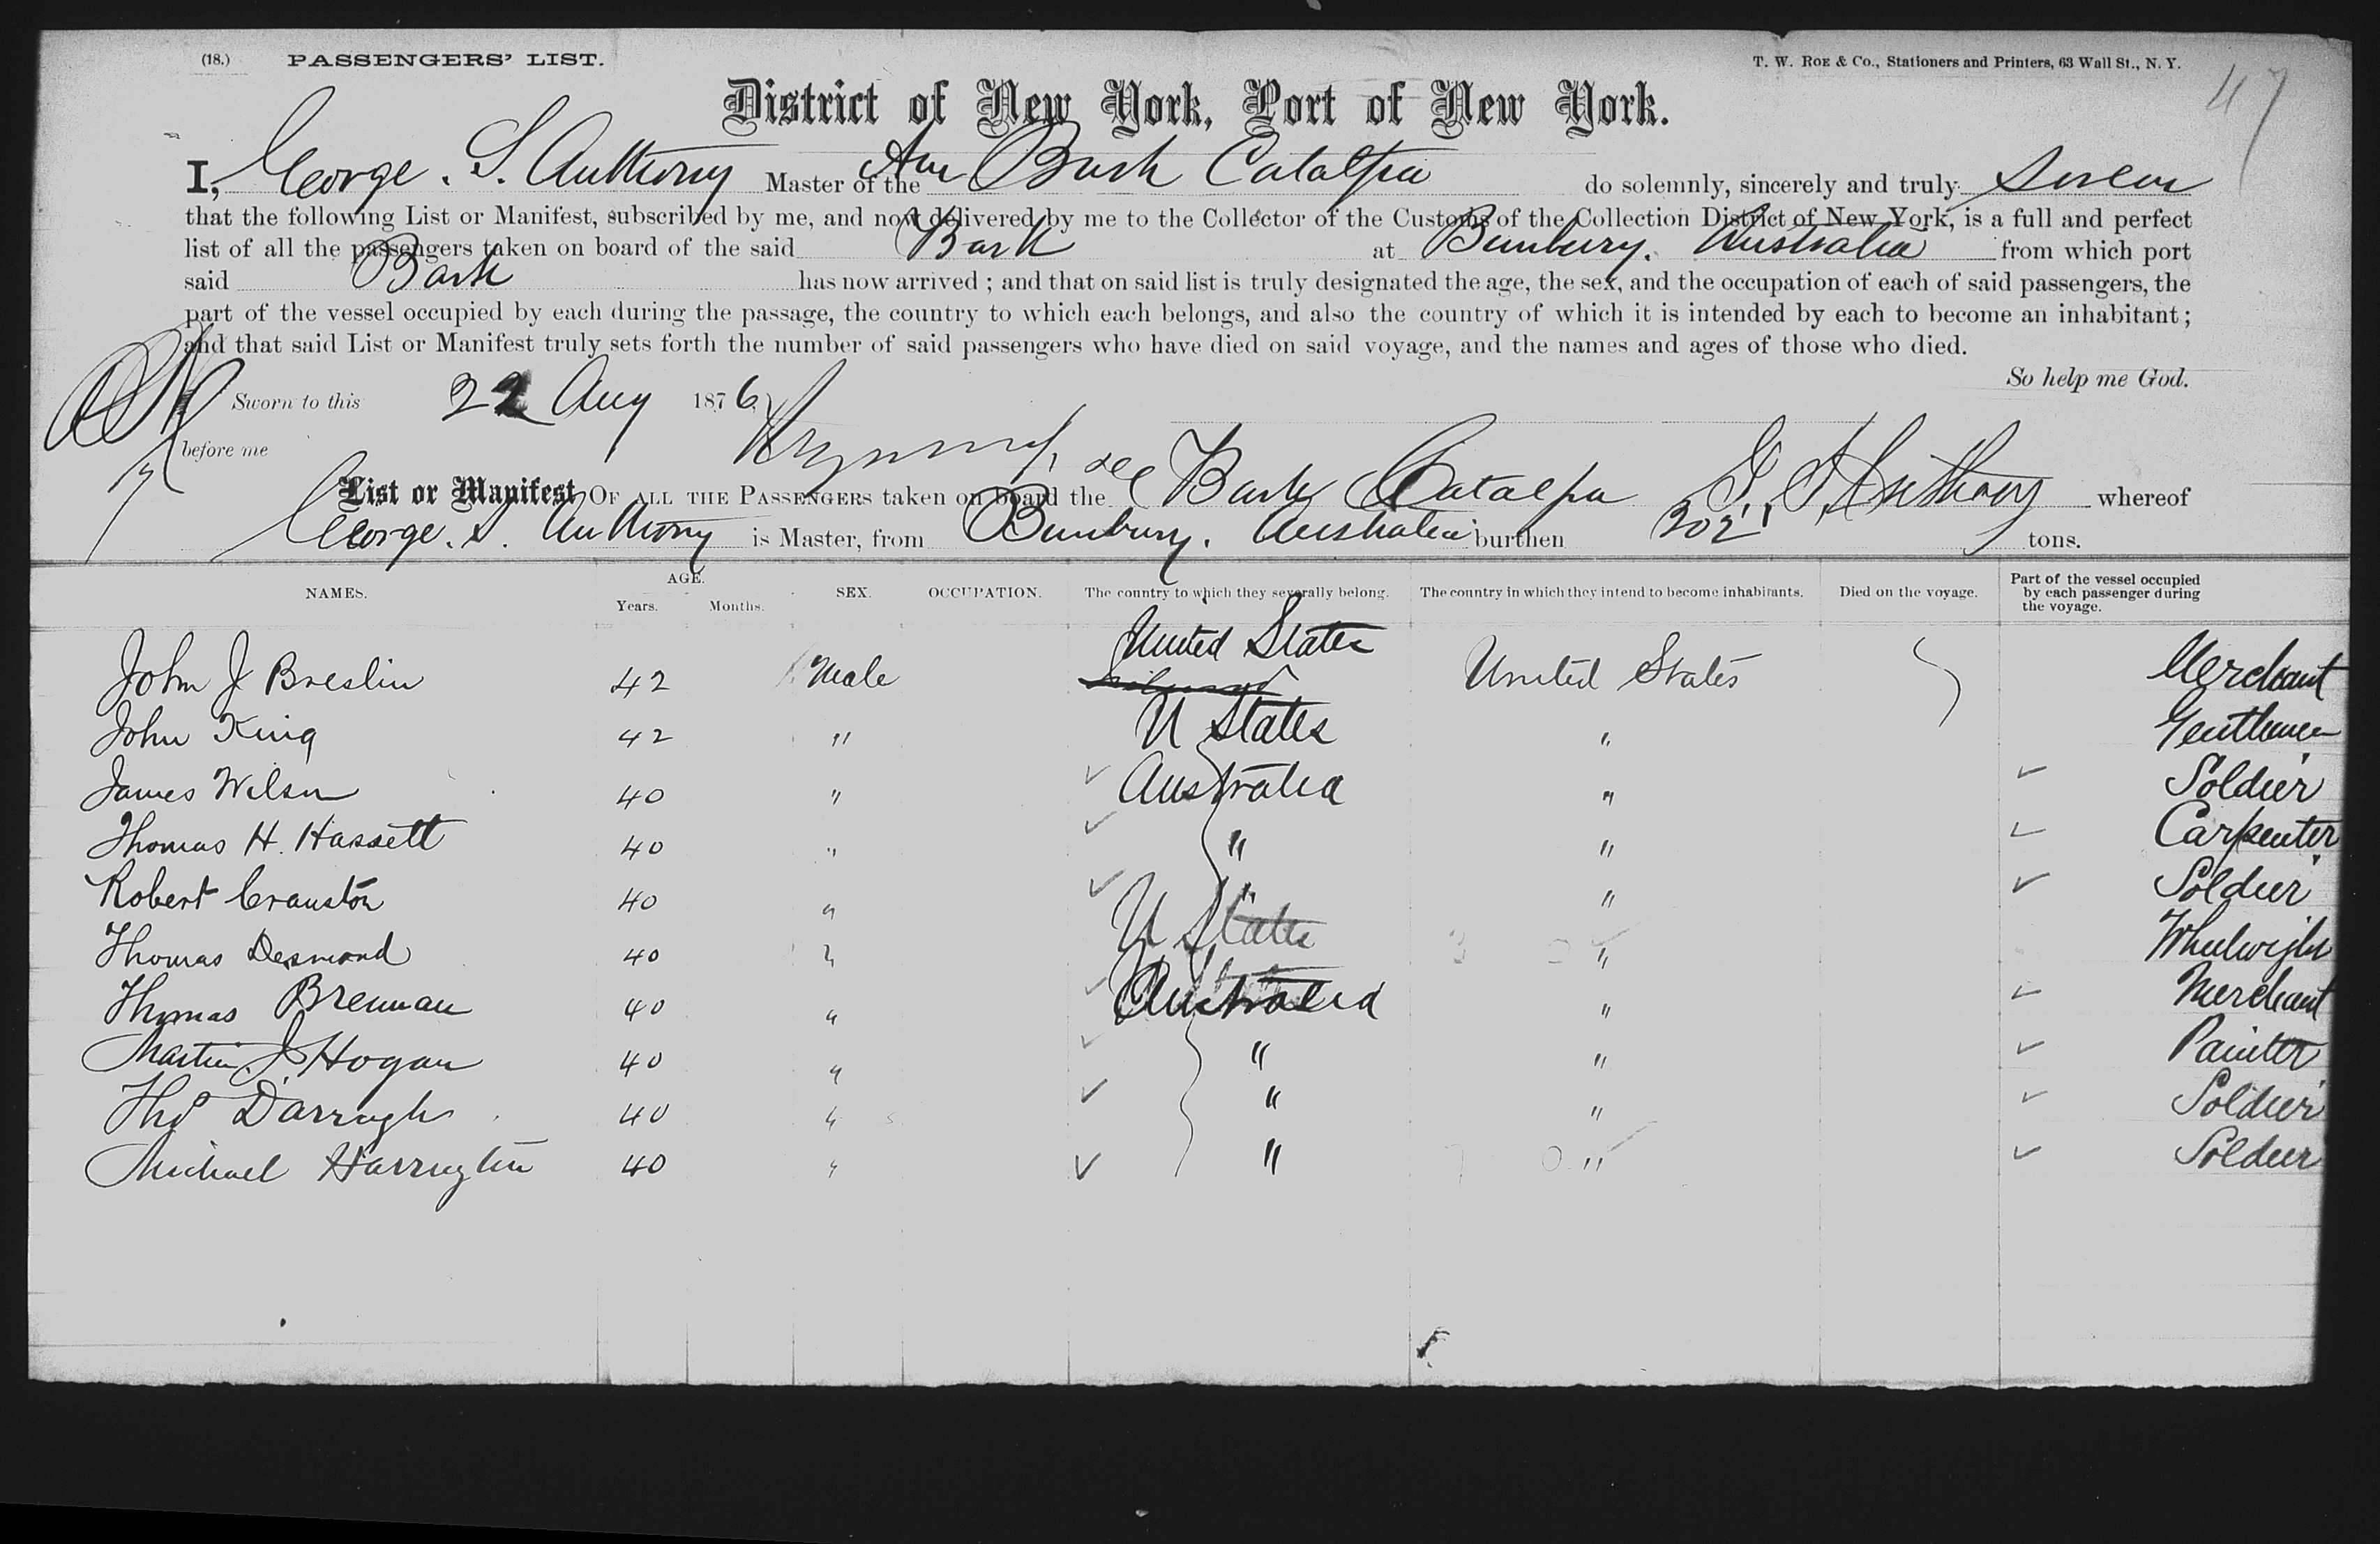 (18.) PASSENGERS' LIST. T. W. ROE & Co., Stationers and Printers, 63 Wall St., N. Y.
47
District of New York, Port of New York.
I, George. S. Anthony Master of the Am Bark Catalpa do solemnly, sincerely and truly swear
that the following List or Manifest, subscribed by me, and now delivered by me to the Collector of the Customs of the Collection District of New York, is a full and perfect
list of all the passengers taken on board of the said Bark at Bunbury. Australia from which port
said Bark has now arrived ; and that on said list is truly designated the age, the sex, and the occupation of each of said passengers, the
part of the vessel occupied by each during the passage, the country to which each belongs, and also the country of which it is intended by each to become an inhabitant ;
and that said List or Manifest truly sets forth the number of said passengers who have died on said voyage, and the names and ages of those who died.
So help me God.
Sworn to this 22 Aug 1876
before me G. S. Anthony
List or Manifest OF ALL THE PASSENGERS taken on board the Bark Catalpa whereof
George. S. Anthony is Master, from Bunbury. Australia burthen 202 tons.
NAMES. AGE. Years. Months. SEX. OCCUPATION. The country to which they severally belong. The country in which they intend to become inhabitants. Died on the voyage. Part of the vessel occupied by each passenger during the voyage.
John J Breslin 42 Male United States United States Merchant
John King 42 " U States " Gentleman
James Wilson 40 " Australia " Soldier
Thomas H. Hassett 40 " " " Carpenter
Robert Cranston 40 " " " Soldier
Thomas Desmond 40 " U States " Whelwright
Thomas Brennan 40 " Australia " Merchant
Martin J Hogan 40 " " " Painter
Thos Darragh 40 " " " Soldier
Michael Harrington 40 " " " Soldier